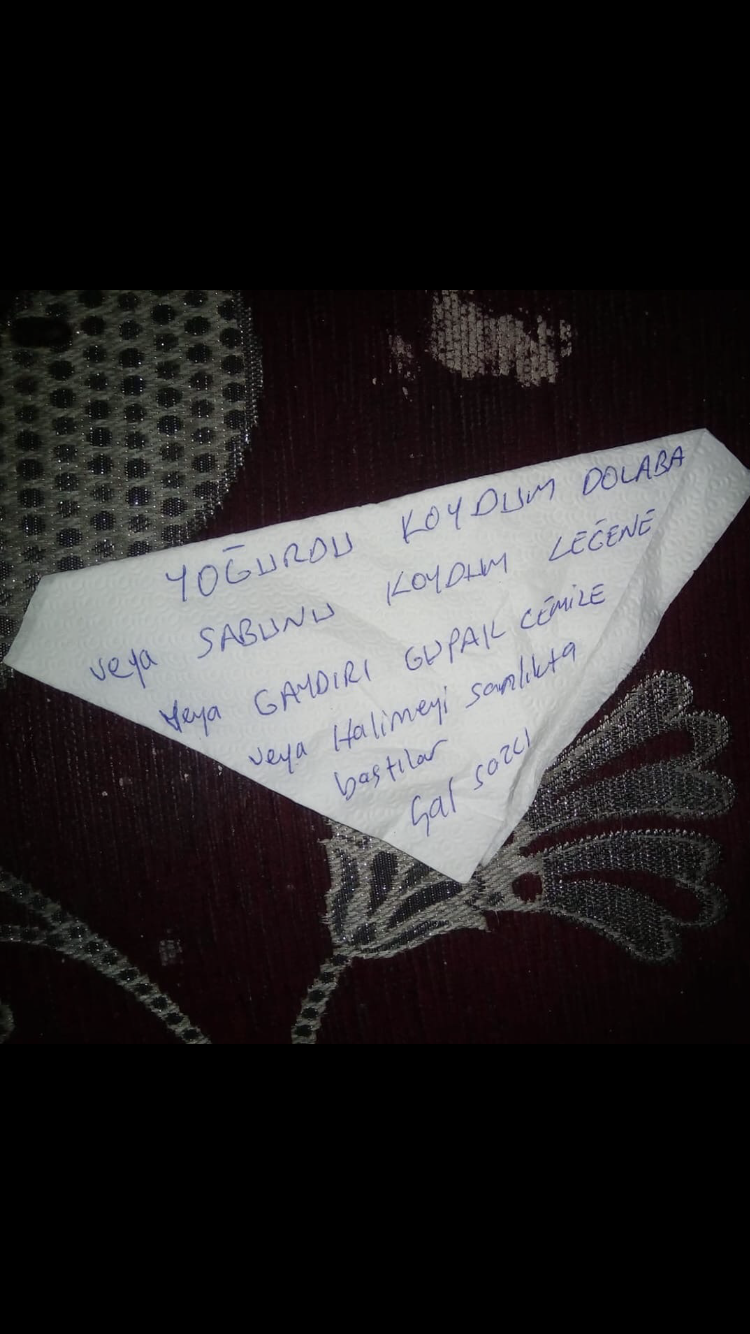 YOĞURDU KOYDUM DOLABA
veya SABUNU KOYDUM LEĞENE
veya GAYDIRI GUPAK CEMİLE
veya Halimeyi samlıkta
bastılar
Çal sazcı